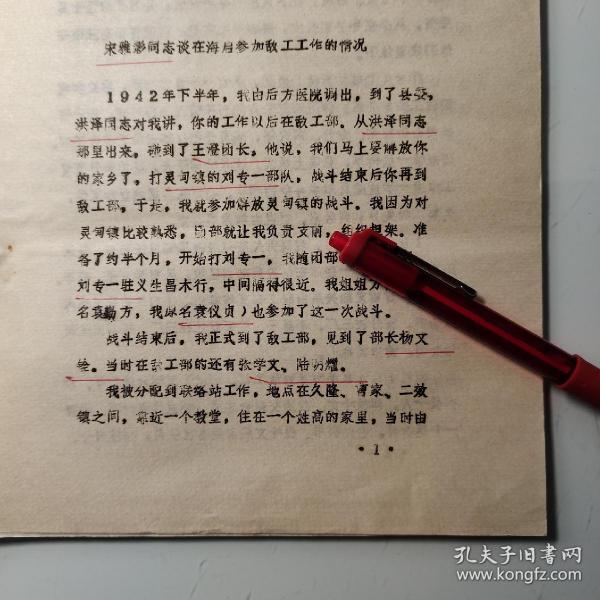 宋雅影同志谈在海启参加敌工工作的情况
1942年下半年，我由后方医院调出，到了县委，
洪泽同志对我讲，你的工作以后在敌工部。从洪泽同志
那里出来，碰到了王澄团长，他说，我们马上要解放你
的家乡了，打灵甸镇的刘专一部队，战斗结束后你再到
敌工部，于是，我就参加解放灵甸镇的战斗。我因为对
灵甸镇比较熟悉，团部就让我负责支前，组织担架。准
备了约半个月，开始打刘专一，我随团部
刘专一驻义生昌木行，中间隔得很近。我姐姐
名袁 方，我原名袁仪贞）也参加了这一次战斗。
战斗结束后，我正式到了敌工部，见到了部长杨文
。当时在敌工部的还有张学文、陆明耀。
我被分配到联络站工作，地点在久隆、曹家、二效
镇之间，靠近一个教堂，住在一个姓高的家里，当时由
·1·
孔夫子旧书网
www.kongfz.com